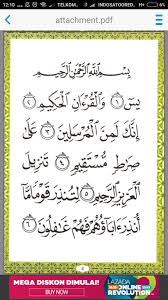 12:10 TELKOM... INDOSATOORED... 6%
attachment.pdf
بِسْمِ اللَّهِ الرَّحْمَٰنِ الرَّحِيمِ
يسٓ ١ وَالْقُرْآنِ الْحَكِيمِ ٢
إِنَّكَ لَمِنَ الْمُرْسَلِينَ ٣ عَلَىٰ
صِرَاطٍ مُسْتَقِيمٍ ٤ تَنْزِيلَ
الْعَزِيزِ الرَّحِيمِ ٥ لِتُنْذِرَ قَوْمًا مَا
أُنْذِرَ آبَاؤُهُمْ فَهُمْ غَافِلُونَ ٦
MEGA DISKON DIMULAI!
BUY NOW
LAZADA
ONLINE
REVOLUTION